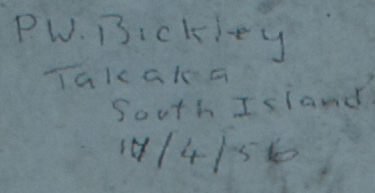 P.W. Bickley
Takaka
South Island.
17/4/56